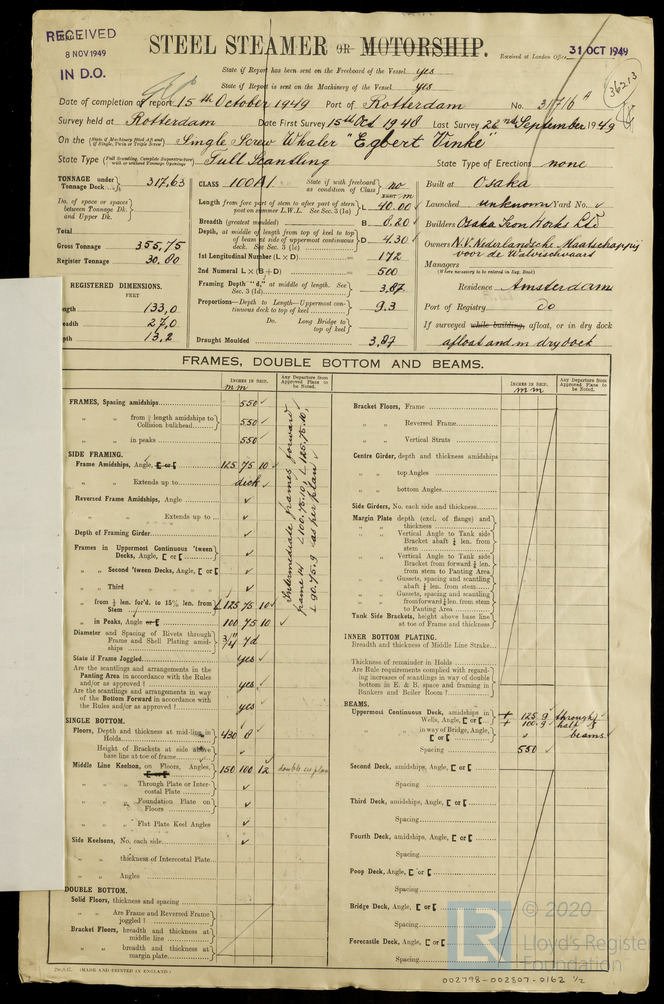 RECEIVED
8 NOV 1949
IN D.O.
STEEL STEAMER OR MOTORSHIP.
Received at London Office 31 OCT 1949
State if Report has been sent on the Freeboard of the Vessel yes
State if Report is sent on the Machinery of the Vessel yes
36213
Date of completion of report 15th October 1949 Port of Rotterdam No. 31716 A
Survey held at Rotterdam Date First Survey 15th Oct 1948 Last Survey 22nd September 1949
On the (State if Machinery fitted Aft and if Single, Twin or Triple Screw) Single Screw Whaler "Egbert Vinke"
State Type (Full Scantling, Complete Superstructure with or without Tonnage Openings) Full Scantling State Type of Erections none
TONNAGE under Tonnage Deck 317,63
Do. of space or spaces between Tonnage Dk. and Upper Dk.
Total
Gross Tonnage 355,75
Register Tonnage 30.80
REGISTERED DIMENSIONS.
FEET
ngth 133,0
eadth 27,0
pth 13,2
CLASS 100A1 State if with freeboard as condition of Class no
Length from fore part of stem to after part of stern post on summer L.W.L. See Sec. 3 (1a) L 40.00 m
Breadth (greatest moulded) B 8.20
Depth, at middle of length from top of keel to top of beam at side of uppermost continuous deck. See Sec. 3 (1c) D 4.30
1st Longitudinal Number (L × D) 172
2nd Numeral L × (B + D) 500
Framing Depth "d," at middle of length. See Sec. 3 (1d) 3,87
Proportions—Depth to Length—Uppermost continuous deck to top of keel 9.3
Do. Long Bridge to top of keel
Draught Moulded 3,87
Built at Osaka
Launched unknown Yard No.
Builders Osaka Iron Works Ltd
Owners N.V. Nederlandsche Maatschappij voor de Walvischvaart
Managers
(Where necessary to be entered in Reg. Book)
Residence Amsterdam
Port of Registry do
If surveyed while building, afloat, or in dry dock
afloat and in dry dock
FRAMES, DOUBLE BOTTOM AND BEAMS.
INCHES IN SHIP.
mm
Any Departure from Approved Plans to be Noted.
FRAMES, Spacing amidships 550
" " from ⅗ length amidships to Collision bulkhead 550
" " in peaks 550
SIDE FRAMING.
Frame Amidships, Angle, [ or [ 125 75 10
" " Extends up to deck
Reversed Frame Amidships, Angle
" " Extends up to
Depth of Framing Girder
Frames in Uppermost Continuous 'tween Decks, Angle, [ or [
" " Second 'tween Decks, Angle, [ or [
" " Third " "
" " from ¼ len. for'd. to 15% len. from Stem L 125 75 10
" " in Peaks, Angle or [ 100 75 10
Diameter and Spacing of Rivets through Frame and Shell Plating amidships 3/4" 7d
State if Frame Joggled yes
Are the scantlings and arrangements in the Panting Area in accordance with the Rules and/or as approved? yes
Are the scantlings and arrangements in way of the Bottom Forward in accordance with the Rules and/or as approved? yes
Intermediate frames forward
frame 14 L 100.75.10, L 125.75.10,
L 90.75.9 as per plan
SINGLE BOTTOM.
Floors, Depth and thickness at mid-line in Holds 430 8
Height of Brackets at side above base line at toe of frame
Middle Line Keelson, on Floors, Angles, [ or [ 150 100 12 double as plan
" " Through Plate or Intercostal Plate
" " Foundation Plate on Floors
" " Flat Plate Keel Angles
Side Keelsons, No. each side
" " thickness of Intercostal Plate
" " Angles
DOUBLE BOTTOM.
Solid Floors, thickness and spacing
" " Are Frame and Reversed Frame joggled?
Bracket Floors, breadth and thickness at middle line
" " breadth and thickness at margin plate
INCHES IN SHIP.
mm
Any Departure from Approved Plans to be Noted.
Bracket Floors, Frame
" " Reversed Frame
" " Vertical Struts
Centre Girder, depth and thickness amidships
" " top Angles
" " bottom Angles
Side Girders, No. each side and thickness
Margin Plate depth (excl. of flange) and thickness
" " Vertical Angle to Tank side Bracket abaft ¼ len. from stem
" " Vertical Angle to Tank side Bracket from forward ¼ len. from stem to Panting Area
" " Gussets, spacing and scantling abaft ¼ len. from stem
" " Gussets, spacing and scantling from forward ¼ len. from stem to Panting Area
Tank Side Brackets, height above base line at toe of Frame and thickness
INNER BOTTOM PLATING.
Breadth and thickness of Middle Line Strake
Thickness of remainder in Holds
Are Rule requirements complied with regarding increases of scantlings in way of double bottom in E. & B. space and framing in Bunkers and Boiler Room?
BEAMS.
Uppermost Continuous Deck, amidships in Wells, Angle, [ or [ 125.9 through
100.9 half
" " in way of Bridge, Angle, [ or [ " beams
Spacing 550
Second Deck, amidships, Angle, [ or [
Spacing
Third Deck, amidships, Angle, [ or [
Spacing
Fourth Deck, amidships, Angle, [ or [
Spacing
Poop Deck, Angle, [ or [
Spacing
Bridge Deck, Angle, [ or [
Spacing
Forecastle Deck, Angle, [ or [
Spacing
(MADE AND PRINTED IN ENGLAND.)
LR © 2020
Lloyd's Register
Foundation
002798-002807-0162 1/2